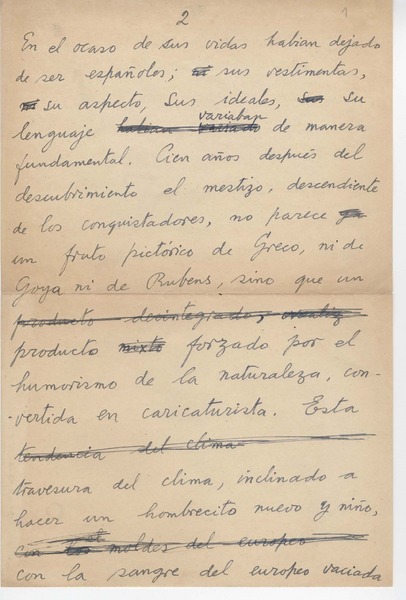 2 1
En el ocaso de sus vidas habían dejado
de ser españoles; ni sus vestimentas,
ni su aspecto, sus ideales, sus su
variaban
lenguaje habían variado de manera
fundamental. Cien años después del
descubrimiento el mestizo, descendiente
de los conquistadores, no parece ya
un fruto pictórico de Greco, ni de
Goya ni de Rubens, sino que un
producto decintegrado,
producto mixto forzado por el
humorismo de la naturaleza, con-
-vertida en caricaturista. Esta
tendencia del clima
travesura del clima, inclinado a
hacer un hombrecito nuevo y niño,
el
sin los moldes del europeo
con la sangre del europeo vaciada